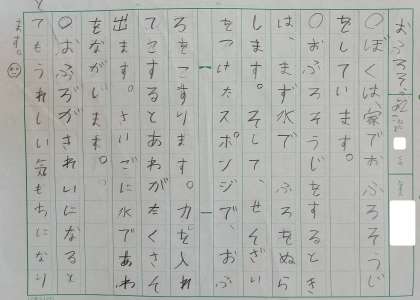 おふろそ
○ぼくは、家でおふろそうじ
をしています。
○おふろそうじをするとき
は、まず水でふろをぬら
します。そして、せんざい
をつけたスポンジで、おふ
ろをこすります。力を入れ
てこするとあわがたくさん
出ます。さいごに水であわ
をながします。
○おふろがきれいになると
てもうれしい気もちになり
ます。
と